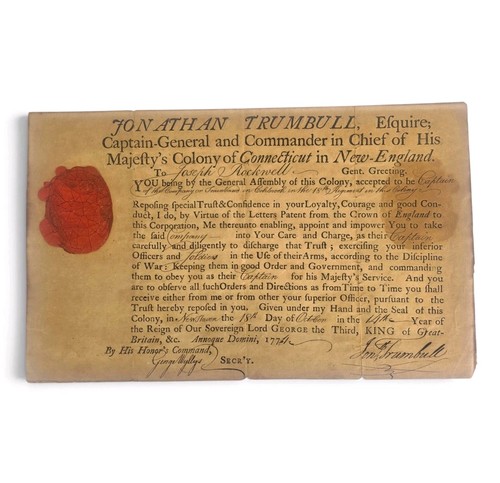 JONATHAN TRUMBULL, Esquire;
Captain-General and Commander in Chief of His
Majesty's Colony of Connecticut in New-England.
To Joseph Rockwell Gent. Greeting.
YOU being by the General Assembly of this Colony, accepted to be Captain
of the Company or Trainband in in the 18th Regiment in this Colony
Reposing special Trust & Confidence in your Loyalty, Courage and good Con-
duct, I do, by Virtue of the Letters Patent from the Crown of England to
this Corporation, Me thereunto enabling, appoint and impower You to take
the said Company into Your Care and Charge, as their Captain
carefully and diligently to discharge that Trust; exercising your inferior
Officers and Soldiers in the Use of their Arms, according to the Discipline
of War: Keeping them in good Order and Government, and commanding
them to obey you as their Captain for his Majesty's Service. And you
are to observe all such Orders and Directions as from Time to Time you shall
receive either from me or from other your superior Officer, pursuant to the
Trust hereby reposed in you. Given under my Hand and the Seal of this
Colony, in New Haven the 18th Day of October in the 14th Year of
the Reign of Our Sovereign Lord GEORGE the Third, KING of Great-
Britain, &c. Annoque Domini, 1774.
By His Honor's Command,
George Wyllys SECR'Y.
Jonth Trumbull